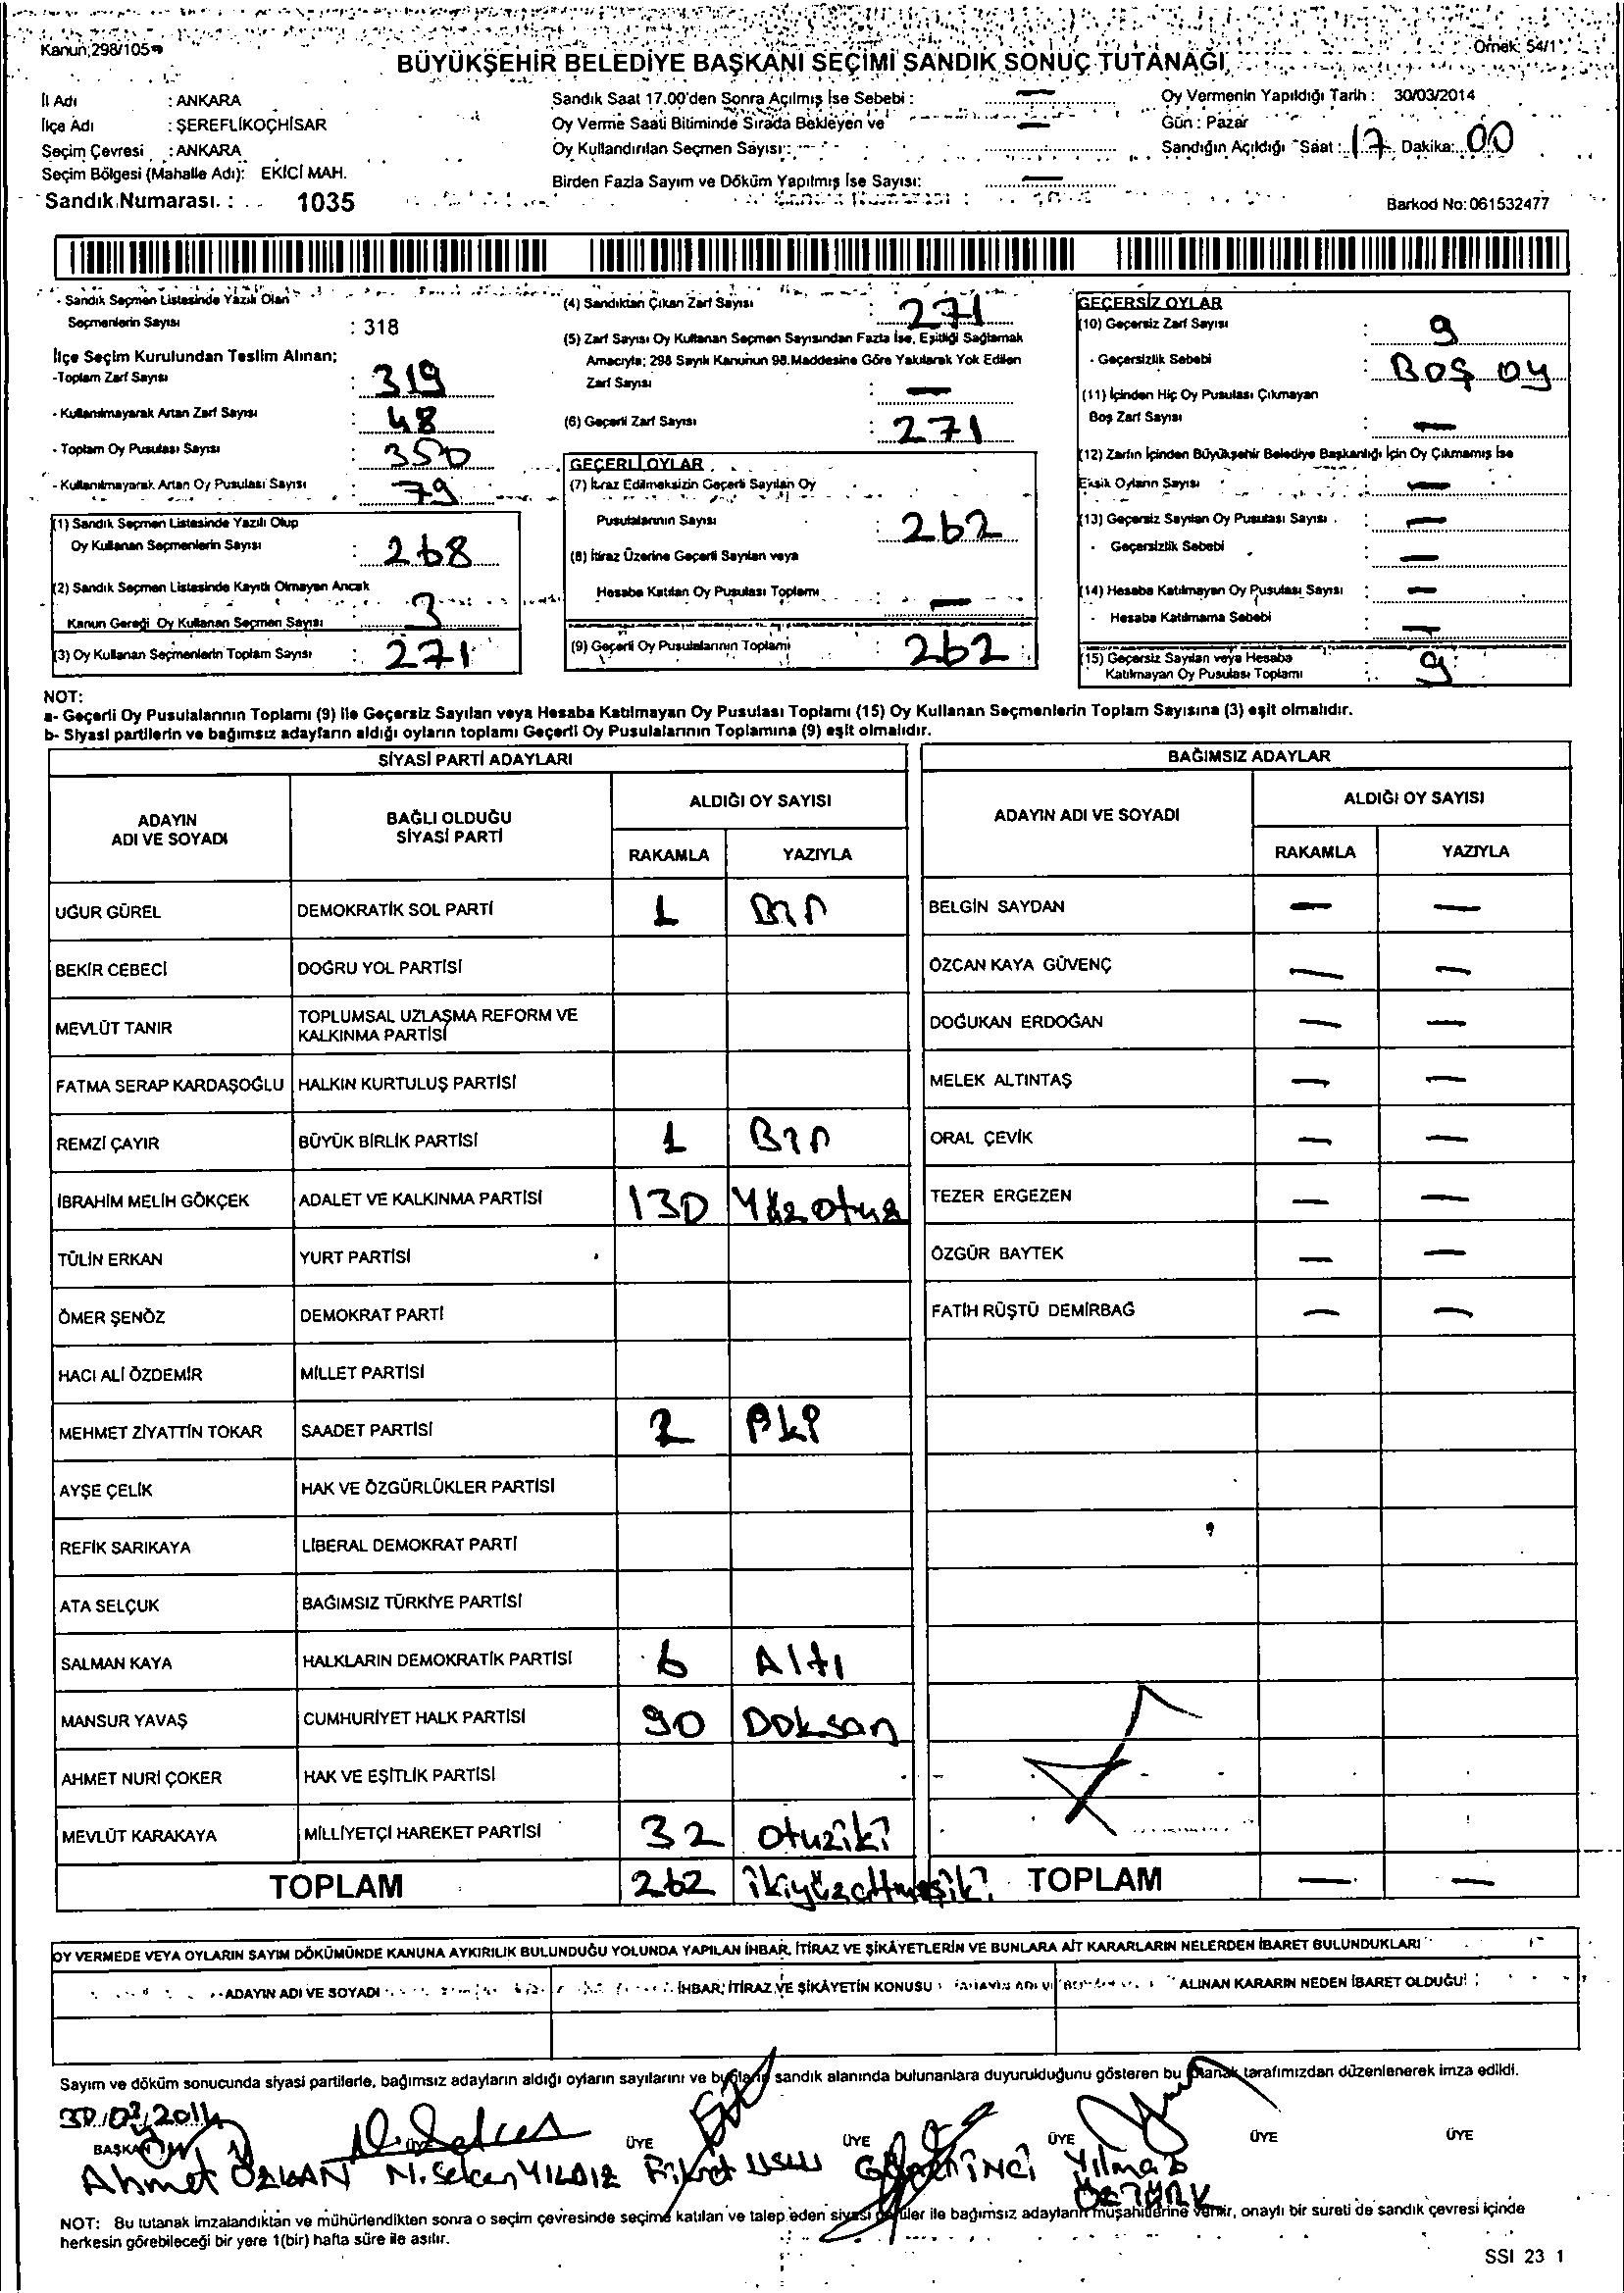 Kanun;298/105
Örnek: 54/1
BÜYÜKŞEHİR BELEDİYE BAŞKANI SEÇİMİ SANDIK SONUÇ TUTANAĞI
İl Adı : ANKARA
İlçe Adı : ŞEREFLİKOÇHİSAR
Seçim Çevresi : ANKARA
Seçim Bölgesi (Mahalle Adı): EKİCİ MAH.
Sandık Numarası. : 1035
Sandık Saat 17.00'den Sonra Açılmış İse Sebebi : —
Oy Verme Saati Bitiminde Sırada Bekleyen ve
Oy Kullandırılan Seçmen Sayısı: —
Birden Fazla Sayım ve Döküm Yapılmış İse Sayısı: —
Oy Vermenin Yapıldığı Tarih : 30/03/2014
Gün : Pazar
Sandığın Açıldığı Saat : 17 Dakika: 00
Barkod No: 061532477
- Sandık Seçmen Listesinde Yazılı Olan
Seçmenlerin Sayısı : 318
İlçe Seçim Kurulundan Teslim Alınan;
-Toplam Zarf Sayısı : 319
- Kullanılmayarak Artan Zarf Sayısı : 48
- Toplam Oy Pusulası Sayısı : 350
- Kullanılmayarak Artan Oy Pusulası Sayısı : 79
(1) Sandık Seçmen Listesinde Yazılı Olup
Oy Kullanan Seçmenlerin Sayısı : 268
(2) Sandık Seçmen Listesinde Kayıtlı Olmayan Ancak
Kanun Gereği Oy Kullanan Seçmen Sayısı : 3
(3) Oy Kullanan Seçmenlerin Toplam Sayısı : 271
(4) Sandıktan Çıkan Zarf Sayısı : 271
(5) Zarf Sayısı Oy Kullanan Seçmen Sayısından Fazla İse, Eşitliği Sağlamak
Amacıyla; 298 Sayılı Kanunun 98.Maddesine Göre Yakılarak Yok Edilen
Zarf Sayısı : —
(6) Geçerli Zarf Sayısı : 271
GEÇERLİ OYLAR
(7) İtiraz Edilmeksizin Geçerli Sayılan Oy
Pusulalarının Sayısı : 262
(8) İtiraz Üzerine Geçerli Sayılan veya
Hesaba Katılan Oy Pusulası Toplamı : —
(9) Geçerli Oy Pusulalarının Toplamı : 262
GEÇERSİZ OYLAR
(10) Geçersiz Zarf Sayısı : 9
- Geçersizlik Sebebi : BOŞ OY
(11) İçinden Hiç Oy Pusulası Çıkmayan
Boş Zarf Sayısı : —
(12) Zarfın İçinden Büyükşehir Belediye Başkanlığı İçin Oy Çıkmamış İse
Eksik Oyların Sayısı : —
(13) Geçersiz Sayılan Oy Pusulası Sayısı : —
- Geçersizlik Sebebi : —
(14) Hesaba Katılmayan Oy Pusulası Sayısı : —
- Hesaba Katılmama Sebebi : —
(15) Geçersiz Sayılan veya Hesaba
Katılmayan Oy Pusulası Toplamı : 9
NOT:
a- Geçerli Oy Pusulalarının Toplamı (9) ile Geçersiz Sayılan veya Hesaba Katılmayan Oy Pusulası Toplamı (15) Oy Kullanan Seçmenlerin Toplam Sayısına (3) eşit olmalıdır.
b- Siyasi partilerin ve bağımsız adayların aldığı oyların toplamı Geçerli Oy Pusulalarının Toplamına (9) eşit olmalıdır.
SİYASİ PARTİ ADAYLARI
ADAYIN ADI VE SOYADI BAĞLI OLDUĞU SİYASİ PARTİ ALDIĞI OY SAYISI
RAKAMLA YAZIYLA
UĞUR GÜREL DEMOKRATİK SOL PARTİ 1 Bir
BEKİR CEBECİ DOĞRU YOL PARTİSİ
MEVLÜT TANIR TOPLUMSAL UZLAŞMA REFORM VE KALKINMA PARTİSİ
FATMA SERAP KARDAŞOĞLU HALKIN KURTULUŞ PARTİSİ
REMZİ ÇAYIR BÜYÜK BİRLİK PARTİSİ 1 Bir
İBRAHİM MELİH GÖKÇEK ADALET VE KALKINMA PARTİSİ 130 Yüzotuz
TÜLİN ERKAN YURT PARTİSİ
ÖMER ŞENÖZ DEMOKRAT PARTİ
HACI ALİ ÖZDEMİR MİLLET PARTİSİ
MEHMET ZİYATTİN TOKAR SAADET PARTİSİ 2 İki
AYŞE ÇELİK HAK VE ÖZGÜRLÜKLER PARTİSİ
REFİK SARIKAYA LİBERAL DEMOKRAT PARTİ
ATA SELÇUK BAĞIMSIZ TÜRKİYE PARTİSİ
SALMAN KAYA HALKLARIN DEMOKRATİK PARTİSİ 6 Altı
MANSUR YAVAŞ CUMHURİYET HALK PARTİSİ 90 Doksan
AHMET NURİ ÇOKER HAK VE EŞİTLİK PARTİSİ
MEVLÜT KARAKAYA MİLLİYETÇİ HAREKET PARTİSİ 32 otuziki
TOPLAM 262 ikiyüzaltmışiki
BAĞIMSIZ ADAYLAR
ADAYIN ADI VE SOYADI ALDIĞI OY SAYISI
RAKAMLA YAZIYLA
BELGİN SAYDAN — —
ÖZCAN KAYA GÜVENÇ — —
DOĞUKAN ERDOĞAN — —
MELEK ALTINTAŞ — —
ORAL ÇEVİK — —
TEZER ERGEZEN — —
ÖZGÜR BAYTEK — —
FATİH RÜŞTÜ DEMİRBAĞ — —
TOPLAM — —
OY VERMEDE VEYA OYLARIN SAYIM DÖKÜMÜNDE KANUNA AYKIRILIK BULUNDUĞU YOLUNDA YAPILAN İHBAR, İTİRAZ VE ŞİKÂYETLERİN VE BUNLARA AİT KARARLARIN NELERDEN İBARET BULUNDUKLARI
ADAYIN ADI VE SOYADI İHBAR, İTİRAZ VE ŞİKÂYETİN KONUSU ALINAN KARARIN NEDEN İBARET OLDUĞU
Sayım ve döküm sonucunda siyasi partilerle, bağımsız adayların aldığı oyların sayılarını ve bunların sandık alanında bulunanlara duyurulduğunu gösteren bu tutanak tarafımızdan düzenlenerek imza edildi.
30/03/2014
BAŞKAN ÜYE ÜYE ÜYE ÜYE ÜYE
Ahmet ÖZKAN M. Seken YILDIZ Fikret USLU Gökhan İNCİ Yılmaz ÖZTÜRK
NOT: Bu tutanak imzalandıktan ve mühürlendikten sonra o seçim çevresinde seçime katılan ve talep eden siyasi partiler ile bağımsız adayların müşahitlerine verilir, onaylı bir sureti de sandık çevresi içinde
herkesin görebileceği bir yere 1(bir) hafta süre ile asılır.
SSI 23 1